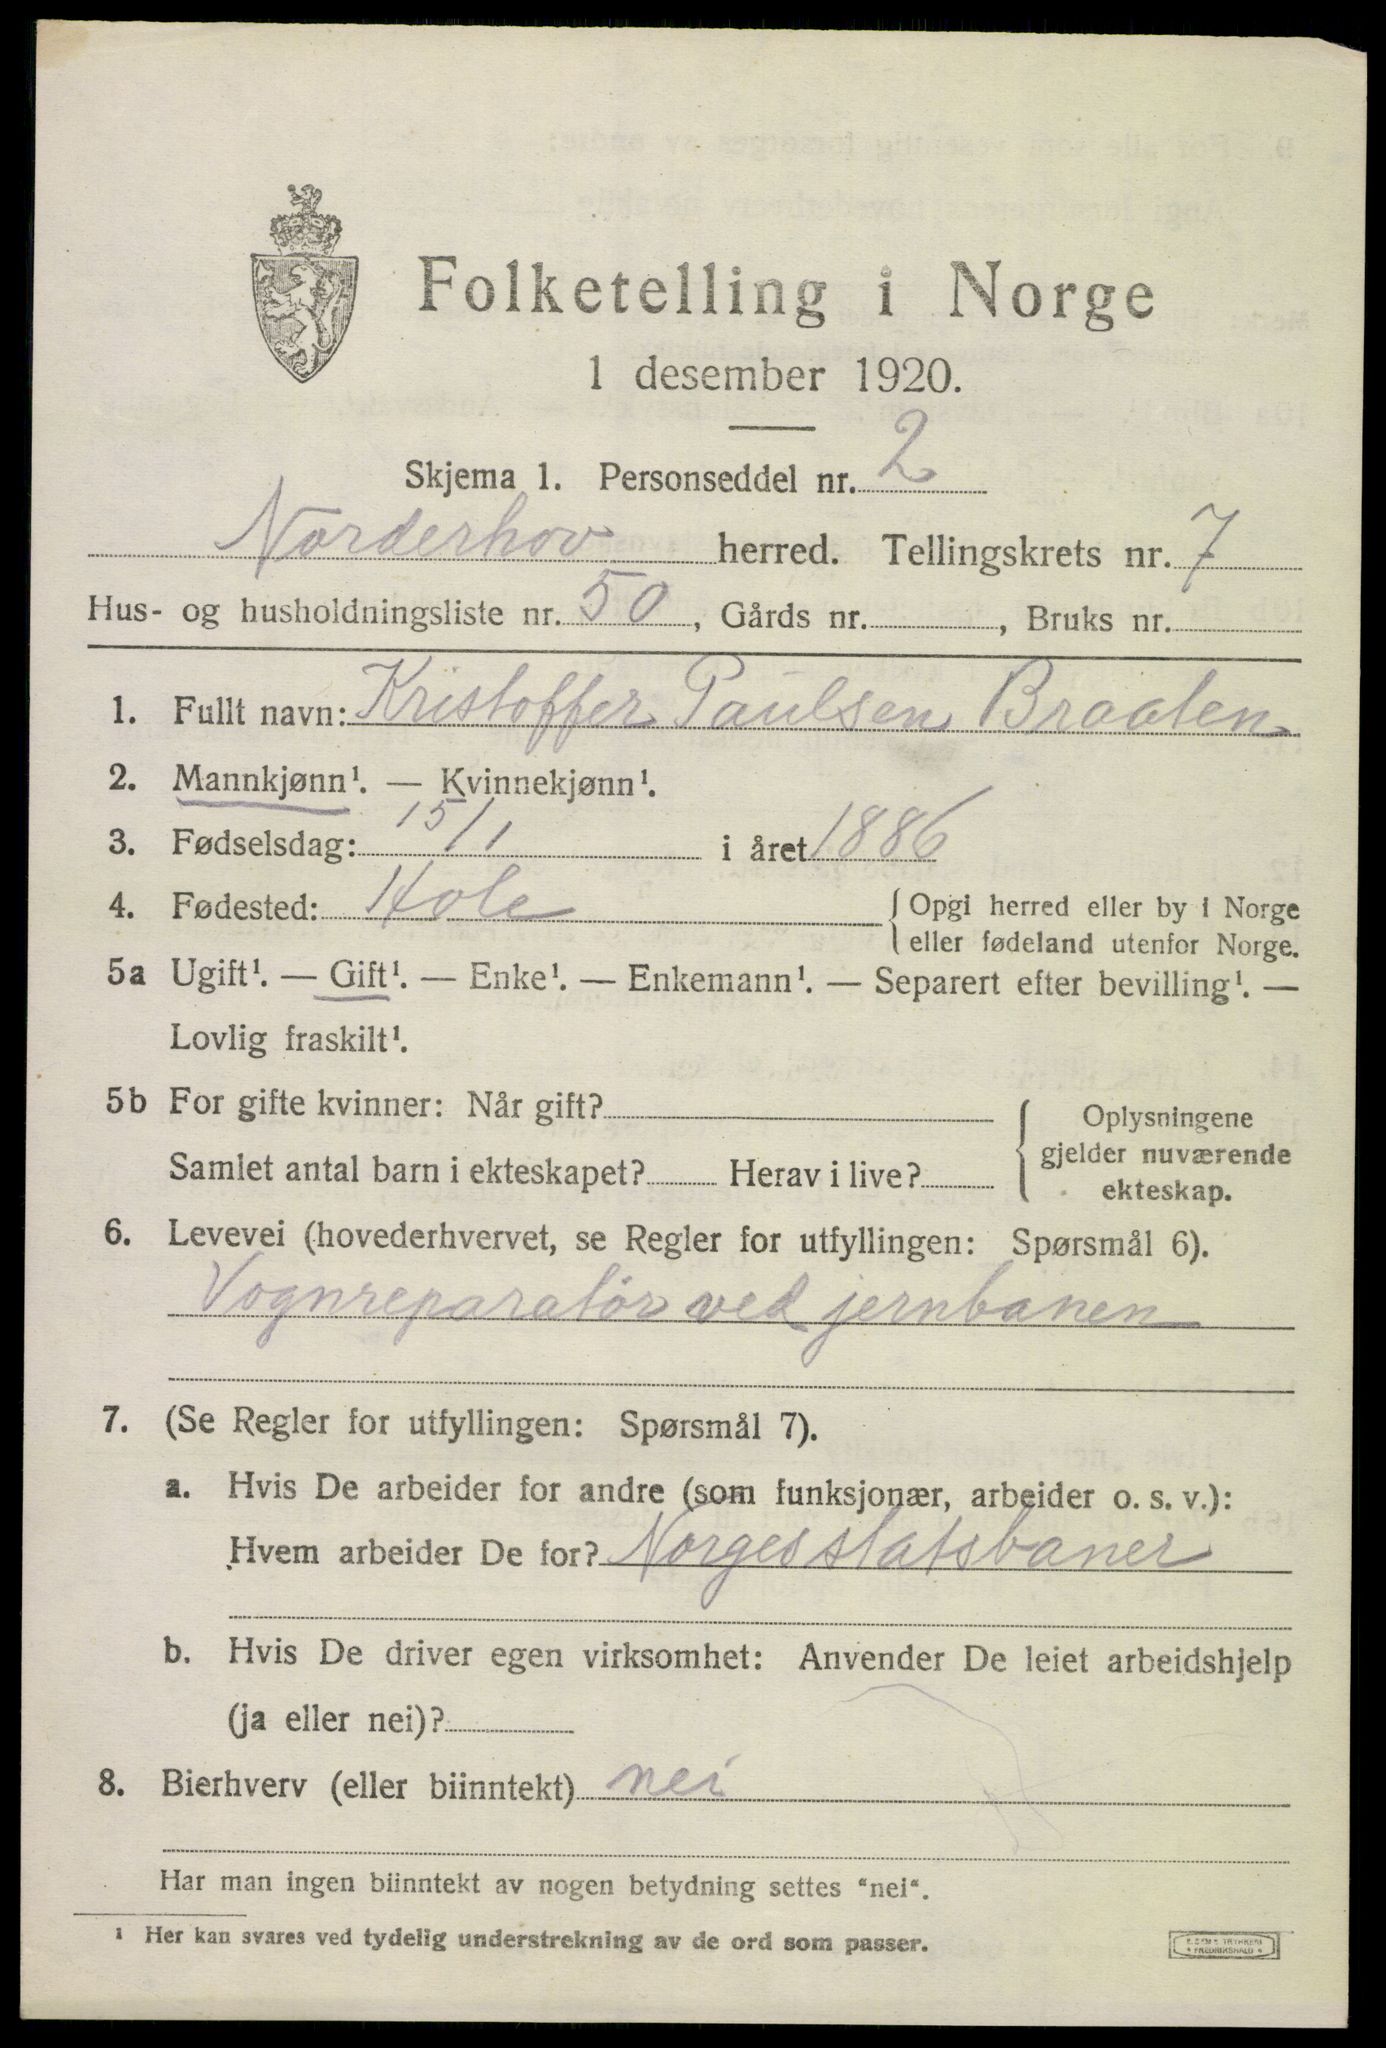 Folketelling i Norge
1 desember 1920.
Skjema 1. Personseddel nr. 2
Norderhov herred. Tellingskrets nr. 7
Hus- og husholdningsliste nr. 50, Gårds nr. , Bruks nr.
1. Fullt navn: Kristoffer Paulsen Braaten
2. Mannkjønn¹. — Kvinnekjønn¹.
3. Fødselsdag: 15/1 i året 1886
4. Fødested: Hole { Opgi herred eller by i Norge
eller fødeland utenfor Norge.
5a Ugift¹. — Gift¹. — Enke¹. — Enkemann¹. — Separert efter bevilling¹. —
Lovlig fraskilt¹.
5b For gifte kvinner: Når gift?
Samlet antal barn i ekteskapet? Herav i live?
{ Oplysningene
gjelder nuværende
ekteskap.
6. Levevei (hovederhvervet, se Regler for utfyllingen: Spørsmål 6).
Vognreparatör ved jernbanen
7. (Se Regler for utfyllingen: Spørsmål 7).
a. Hvis De arbeider for andre (som funksjonær, arbeider o. s. v.):
Hvem arbeider De for? Norges statsbaner
b. Hvis De driver egen virksomhet: Anvender De leiet arbeidshjelp
(ja eller nei)?
8. Bierhverv (eller biinntekt) nei
Har man ingen biinntekt av nogen betydning settes "nei".
¹ Her kan svares ved tydelig understrekning av de ord som passer.
FREDRIKSHALD